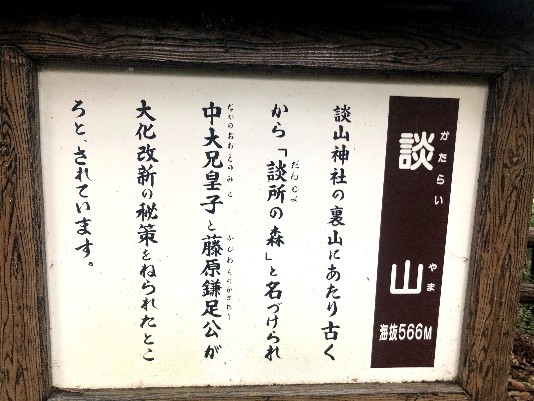 談山
かたらい やま
海抜566M
談山神社の裏山にあたり古く
から「談所の森」と名づけられ
だんじょ
中大兄皇子と藤原鎌足公が
なかのおおえのみこ ふじわらのかまたりこう
大化改新の秘策をねられたとこ
ろと、されています。